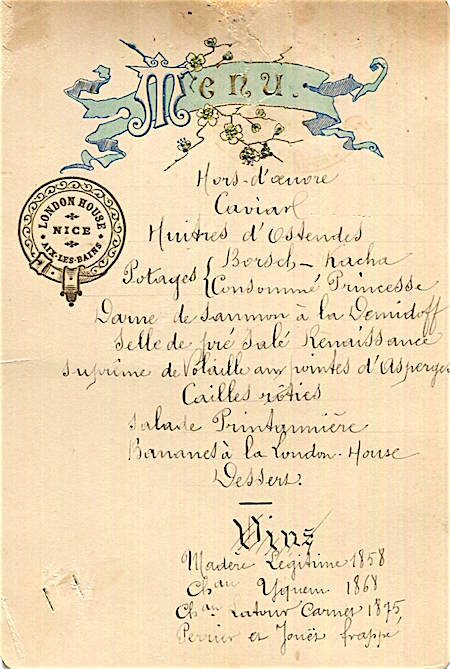 Menu
LONDON HOUSE
NICE
AIX-LES-BAINS
Hors-d'œuvre
Caviar
Huitres d'Ostendes
Potages { Borsch - Kacha
Consommé Princesse
Darne de saumon à la Demidoff
Selle de pré salé Renaissance
Suprême de Volaille aux pointes d'Asperges
Cailles rôties
Salade Printannière
Bananes à la London-House
Dessert.
Vins
Madère Légitime 1858
Chau Yquem 1868
Chau Latour Carnet 1875
Perrier et Jouët frappé